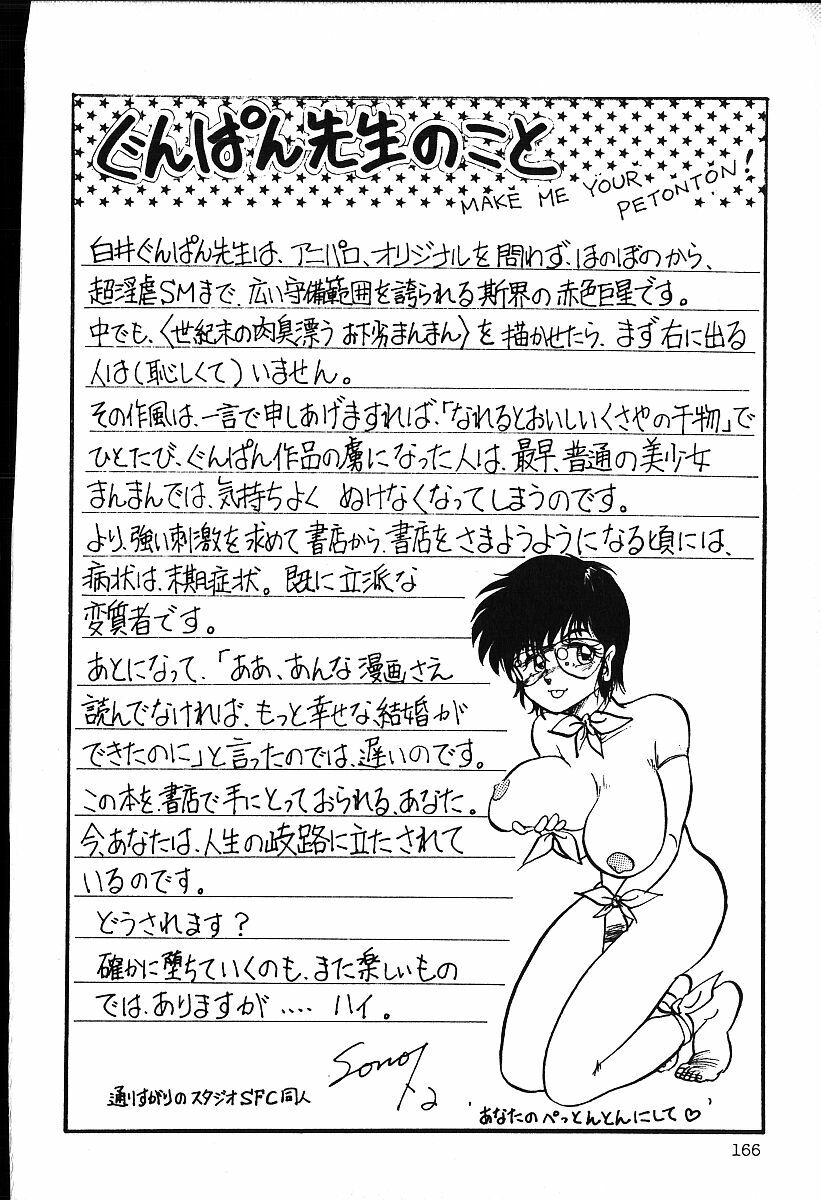 ぐんぱん先生のこと
MAKE ME YOUR
PETONTON!
白井ぐんぱん先生は、アニパロ、オリジナルを問わず、ほのぼのから、
超淫虐SMまで、広い守備範囲を誇られる斯界の赤色巨星です。
中でも、〈世紀末の肉臭漂う お下劣まんまん〉を描かせたら、まず右に出る
人は(恥しくて)いません。
その作風は、一言で申しあげますれば、「なれるとおいしいくさやの干物」で
ひとたび、ぐんぱん作品の虜になった人は、最早、普通の美少女
まんまんでは、気持ちよく ぬけなくなってしまうのです。
より、強い刺激を求めて書店から、書店をさまようようになる頃には、
病状は、末期症状。既に立派な
変質者です。
あとになって、「ああ、あんな漫画さえ
読んでなければ、もっと幸せな、結婚が
できたのに」と言ったのでは、遅いのです。
この本を、書店で手にとっておられる、あなた。
今、あなたは、人生の岐路に立たされて
いるのです。
どうされます?
確かに堕ちていくのも、また楽しいもの
では、ありますが.... ハイ。
通りすがりのスタジオSFC同人
あなたのぺっとんとんにして♡
166